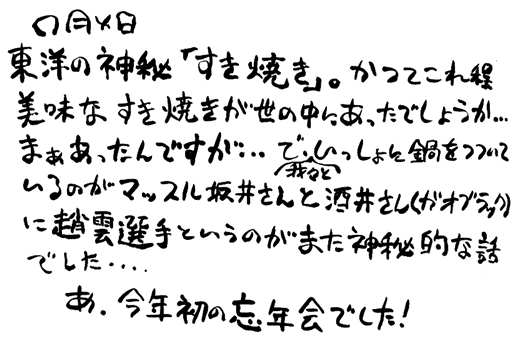 〇月×日
東洋の神秘「すき焼き」。かつてこれ程
美味な すき焼きが世の中にあったでしょうか…
まぁあったんですが… で、いっしょに鍋をつついて
我々と
いるのがマッスル坂井さんと酒井さん(ガオブラック)
に趙雲選手というのがまた神秘的な話
でした‥‥
あ、今年初の忘年会でした!